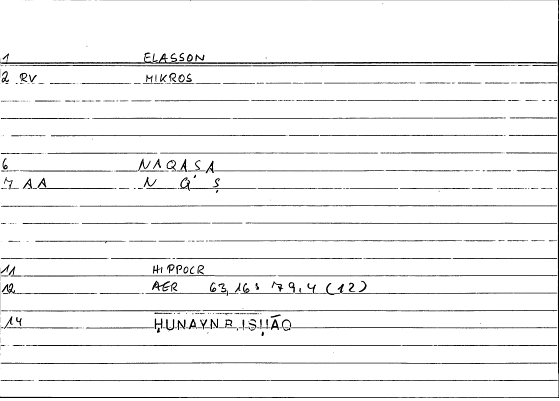 1 ELASSON
2 RV MIKROS
6 NAQAṢA
7 AA N Q Ṣ
11 HIPPOCR
12 AER 63,16: 79,4 (12)
14 ḤUNAYN B. ISḤĀQ